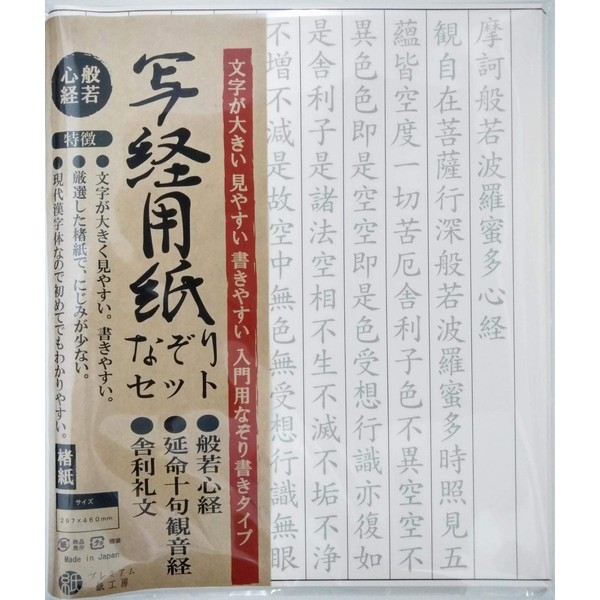 摩訶般若波羅蜜多心経
観自在菩薩行深般若波羅蜜多時照見五
蘊皆空度一切苦厄舎利子色不異空空不
異色色即是空空即是色受想行識亦復如
是舎利子是諸法空相不生不滅不垢不浄
不増不減是故空中無色無受想行識無眼
文字が大きい 見やすい 書きやすい 入門用なぞり書きタイプ
写経用紙
なぞり
セット
●般若心経
●延命十句観音経
●舎利礼文
般若
心経
特徴
●文字が大きく見やすい。書きやすい。
●厳選した楮紙で、にじみが少ない。
●現代漢字体なので初めてでもわかりやすい。
楮紙
サイズ
297×460mm
Made in Japan
紙
プレミアム
紙工房